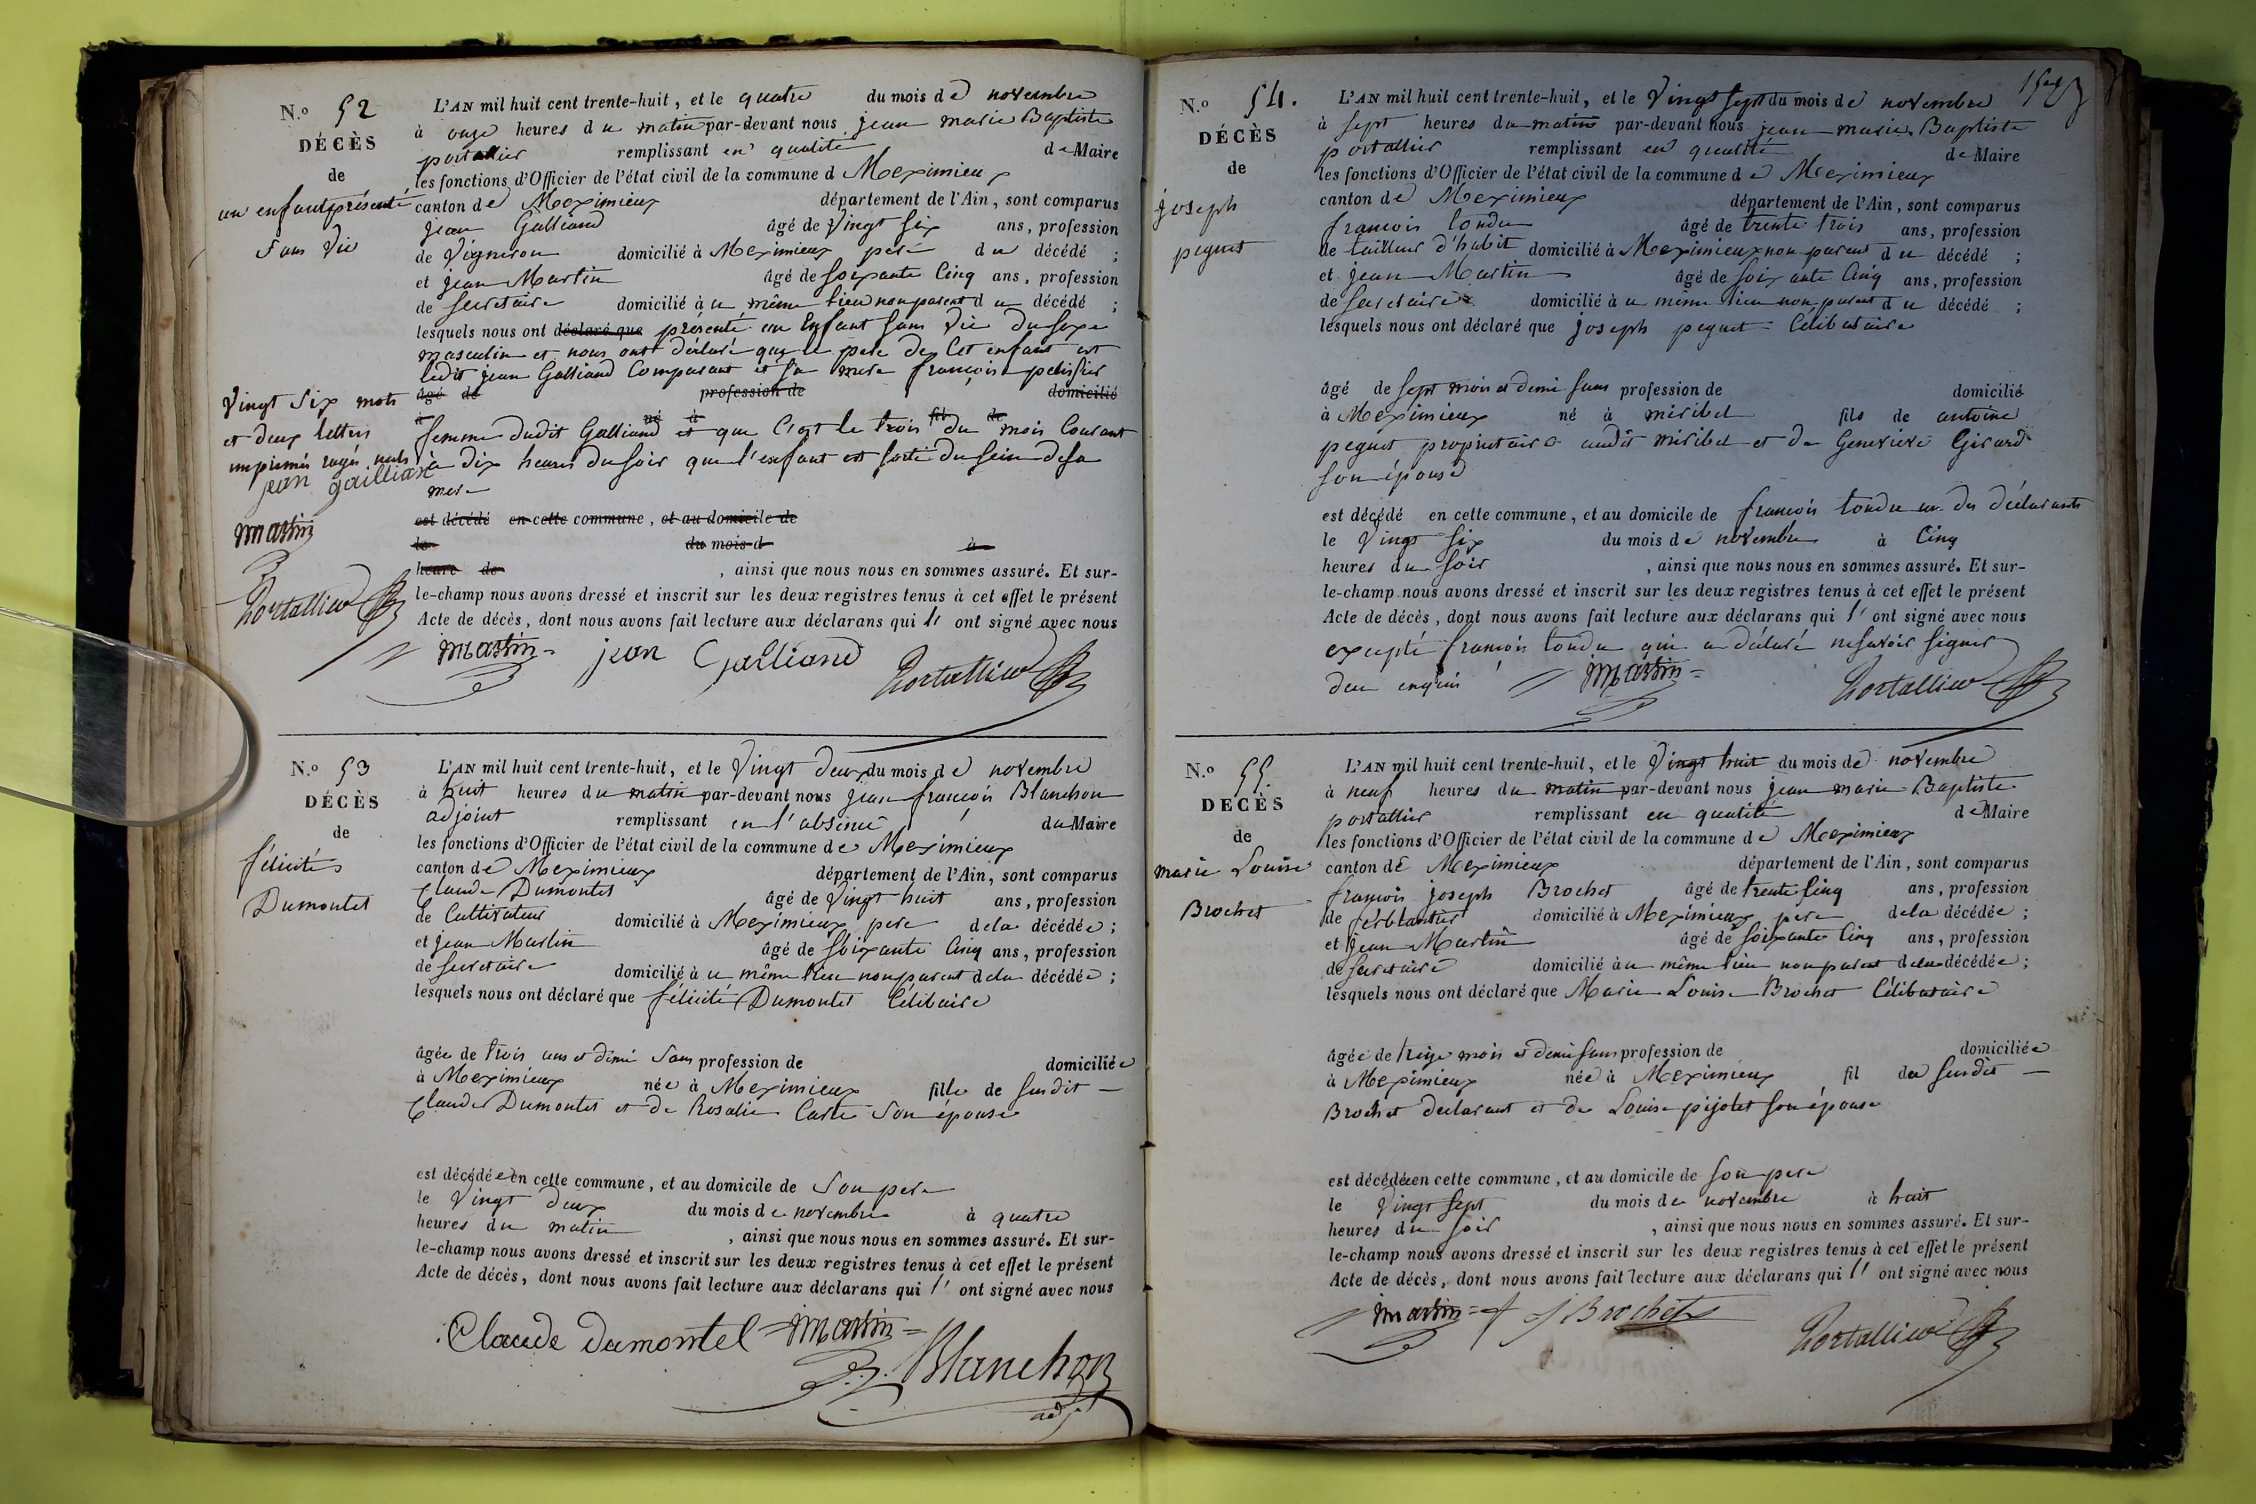 N.º 52
DÉCÈS
de
un enfant présenté
sans vie
L'AN mil huit cent trente-huit, et le quatre du mois de novembre
à onze heures du matin par-devant nous jean marie Baptiste
portallier remplissant en qualité de Maire
les fonctions d'Officier de l'état civil de la commune d Meximieux
canton de Meximieux département de l'Ain, sont comparus
jean Galliand âgé de vingt six ans, profession
de vigneron domicilié à Meximieux pere du décédé ;
et jean Martin âgé de soixante cinq ans, profession
de secretaire domicilié à u même lieu non parent du décédé ;
lesquels nous ont déclaré que présenté un enfant sans vie du sexe
masculin et nous ont déclaré que le pere de cet enfant est
ledit jean Galliand comparant et sa mere françoise pelissier
âgé de profession de domicilié
à né à fil de
femme dudit Galliand et que c'est le trois du mois courant
à dix heures du soir que l'enfant est sorti du sein de sa
mere
est décédé en cette commune, et au domicile de
le du mois d à
heure de , ainsi que nous nous en sommes assuré. Et sur-
le-champ nous avons dressé et inscrit sur les deux registres tenus à cet effet le présent
Acte de décès, dont nous avons fait lecture aux déclarans qui l' ont signé avec nous
martin jean Galliand Portallier
vingt six mots
et deux lettres
imprimés rayés nuls
jean galliand
martin
Portallier
N.º 53
DÉCÈS
de
félicité
Dumontet
L'AN mil huit cent trente-huit, et le vingt deux du mois de novembre
à huit heures du matin par-devant nous jean françois Blanchon
adjoint remplissant en l'absence du Maire
les fonctions d'Officier de l'état civil de la commune de Meximieux
canton de Meximieux département de l'Ain, sont comparus
Claude Dumontet âgé de vingt huit ans, profession
de cultivateur domicilié à Meximieux pere dela décédée ;
et jean Martin âgé de soixante cinq ans, profession
de secretaire domicilié à u même lieu non parent dela décédée ;
lesquels nous ont déclaré que félicité Dumontet célibaire
âgée de trois ans et demi sans profession de domiciliée
à Meximieux née à Meximieux fille de susdit
Claude Dumontet et de Rosalie Carte son épouse
est décédée en cette commune, et au domicile de son pere
le vingt deux du mois de novembre à quatre
heures du matin , ainsi que nous nous en sommes assuré. Et sur-
le-champ nous avons dressé et inscrit sur les deux registres tenus à cet effet le présent
Acte de décès, dont nous avons fait lecture aux déclarans qui l' ont signé avec nous
Claude dumontel martin
Blanchon
adjt
N.º 54.
DÉCÈS
de
joseph
peguet
L'AN mil huit cent trente-huit, et le vingt sept du mois de novembre
à sept heures du matin par-devant nous jean marie Baptiste
portallier remplissant en qualité de Maire
les fonctions d'Officier de l'état civil de la commune de Meximieux
canton de Meximieux département de l'Ain, sont comparus
françois tondu âgé de trente trois ans, profession
de tailleur d'habit domicilié à Meximieux non parent du décédé ;
et jean Martin âgé de soixante cinq ans, profession
de secretaire domicilié à u même lieu non parent du décédé ;
lesquels nous ont déclaré que joseph peguet célibataire
âgé de sept mois et demi sans profession de domicilié
à Meximieux né à miribel fils de antoine
peguet proprietaire audit miribel et de Genevieve Girard
son épouse
est décédé en cette commune, et au domicile de françois tondu un des déclarants
le vingt six du mois de novembre à cinq
heures du soir , ainsi que nous nous en sommes assuré. Et sur-
le-champ nous avons dressé et inscrit sur les deux registres tenus à cet effet le présent
Acte de décès, dont nous avons fait lecture aux déclarans qui l' ont signé avec nous
excepté françois tondu qui a déclaré ne savoir signer
de ce enquis martin Portallier
N.º 55.
DÉCÈS
de
marie Louise
Brochet
L'AN mil huit cent trente-huit, et le vingt huit du mois de novembre
à neuf heures du matin par-devant nous jean marie Baptiste
portallier remplissant en qualité de Maire
les fonctions d'Officier de l'état civil de la commune de Meximieux
canton de Meximieux département de l'Ain, sont comparus
françois joseph Brochet âgé de trente cinq ans, profession
de ferblantier domicilié à Meximieux pere dela décédée ;
et jean Martin âgé de soixante cinq ans, profession
de secretaire domicilié à u même lieu non parent dela décédée ;
lesquels nous ont déclaré que Marie Louise Brochet célibataire
âgée de treize mois et demi sans profession de domiciliée
à Meximieux née à Meximieux fil du susdit
Brochet declarant et de Louise pijolet son épouse
est décédée en cette commune, et au domicile de son pere
le vingt sept du mois de novembre à huit
heures du soir , ainsi que nous nous en sommes assuré. Et sur-
le-champ nous avons dressé et inscrit sur les deux registres tenus à cet effet le présent
Acte de décès, dont nous avons fait lecture aux déclarans qui l' ont signé avec nous
martin f j Brochet Portallier